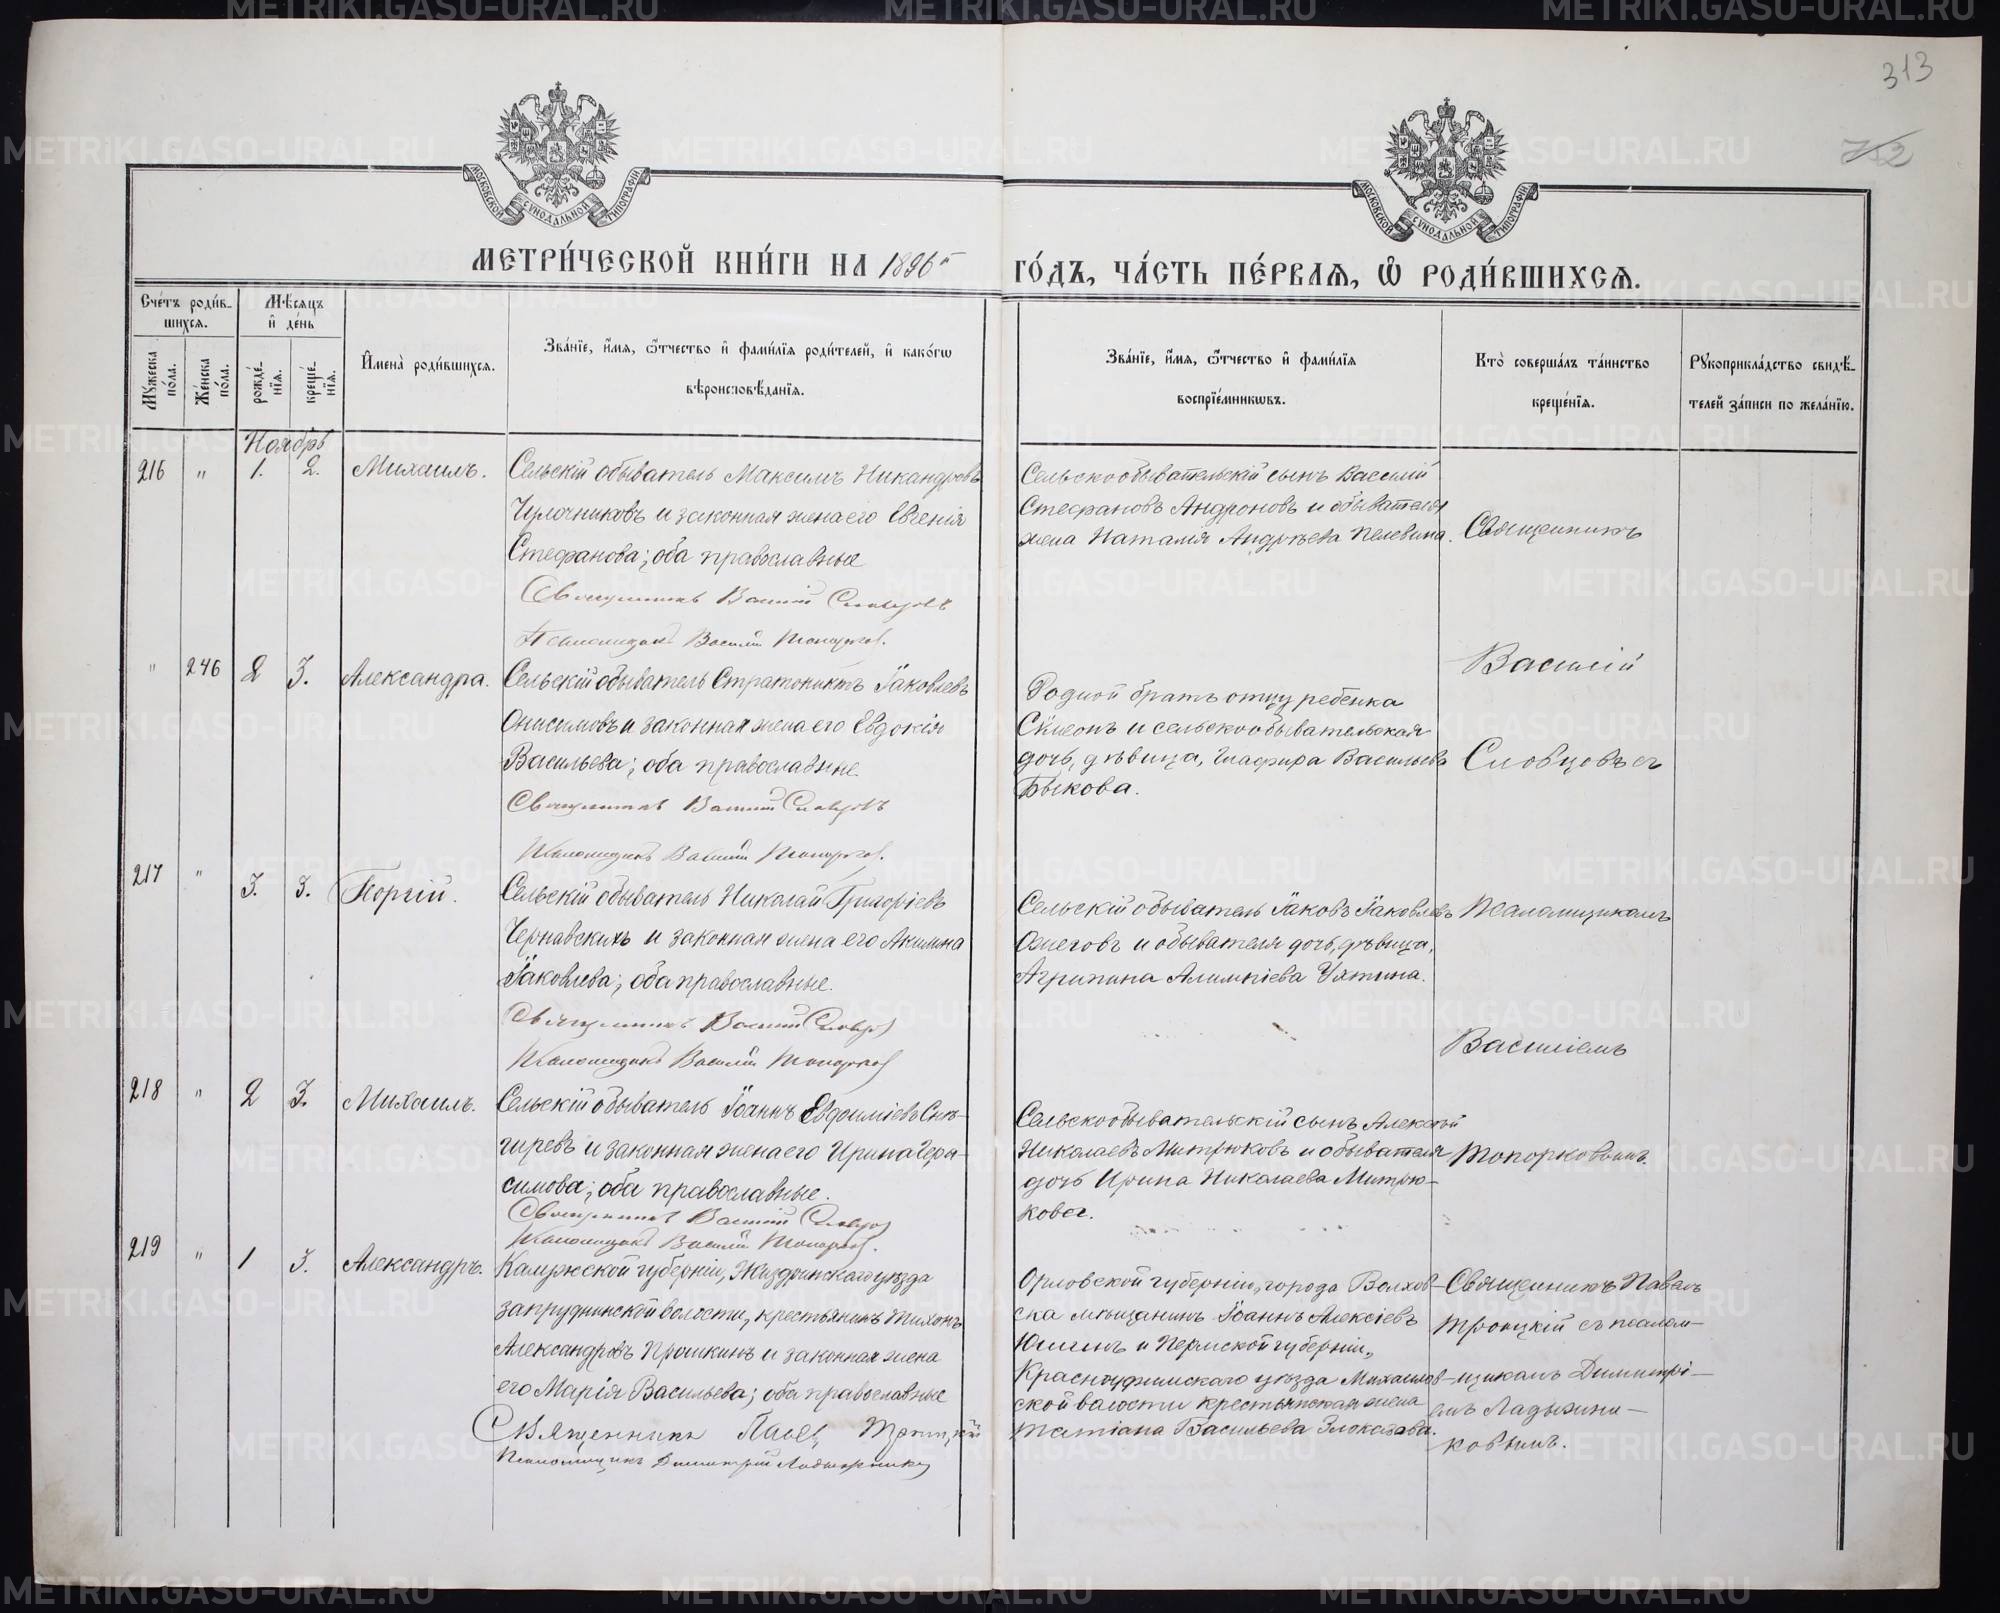 313
МОСКОВСКОЙ СѴНОДАЛЬНОЙ ТИПОГРАФІИ
МОСКОВСКОЙ СѴНОДАЛЬНОЙ ТИПОГРАФІИ
МЕТРИ́ЧЕСКОЙ КНИ́ГИ НА 1896й ГО́ДЪ, ЧА́СТЬ ПЕ́РВАЯ, Ѿ РОДИ́ВШИХСЯ.
Сче́тъ роди́в-
шихся.
Мѣ́сяцъ
и҆ де́нь
Мꙋ́жеска по́ла.
Же́нска по́ла.
рожде́-нїя.
креще́-нїя.
И҆мена̀ роди́вшихся.
Зва́нїе, и҆́мя, ѻ҆́тчество и҆ фами́лїя роди́телей, и҆ како́гѡ
вѣроисповѣ́данїя.
Зва́нїе, и҆́мя, ѻ҆́тчество и҆ фами́лїя
воспрїе́мникѡвъ.
Кто̀ соверша́лъ та́инство
креще́нїя.
Рꙋкоприкла́дство свидѣ́-
телей за́писи по жела́нїю.
Ноябрь
216 " 1. 2. Михаилъ.
Сельскій обыватель Максимъ Никандровъ
Чулочниковъ и законная жена его Евгенія
Стефанова; оба православные
Священникъ Василій Словцовъ
Псаломщикъ Василій Топорков.
Сельскообывательскій сынъ Василій
Стефановъ Андроновъ и обывателя
жена Наталія Андреева Пелевина.
Священникъ
" 246 2 3. Александра.
Сельскій обыватель Стратоникъ Іаковлевъ
Онисимовъ и законная жена его Евдокія
Васильева; оба православные.
Священникъ Василій Словцовъ
Псаломщикъ Василій Топорков.
Родной братъ отцу ребенка
Симеонъ и сельскообывательская
дочь, дѣвица, Глафира Васильева
Быкова.
Василій
Словцовъ съ
217 " 3. 3. Георгій.
Сельскій обыватель Николай Григоріевъ
Чернавскихъ и законная жена его Акилина
Іаковлева; оба православные.
Священникъ Василій Словцов
Псаломщикъ Василій Топорков
Сельскій обыватель Іаковъ Іаковлевъ
Ожеговъ и обывателя дочь, дѣвица,
Агрипина Алимпіева Ухтина.
Псаломщикомъ
Василіемъ
218 " 2 3. Михаилъ.
Сельскій обыватель Іоаннъ Евфиміевъ Снѣ-
гиревъ и законная жена его Ирина Гера-
симова; оба православные.
Священникъ Василій Словцов
Псаломщикъ Василій Топорков.
Сельскообывательскій сынъ Алексѣй
Николаевъ Митрюковъ и обывателя
дочь Ирина Николаева Митрю-
кова.
Топорковымъ.
219 " 1 3. Александръ.
Калужской губерніи, Жиздринскаго уѣзда
запруднинской волости, крестьянинъ Тихонъ
Александровъ Прошкинъ и законная жена
его Марія Васильева; оба православные
Священникъ Павелъ Троицкій
Псаломщикъ Димитрій
Орловской губерніи, города Волхов-
ска мѣщанинъ Іоаннъ Алексіевъ
и Пермской губерніи,
Красноуфимскаго уѣзда Михайлов-
ской волости крестьянская жена
Татіана Васильева Злоказова.
Священникъ Павелъ
Троицкій съ псалом-
щикомъ Димитрі-
емъ Ладыжни-
ковымъ.
METRIKI.GASO-URAL.RU